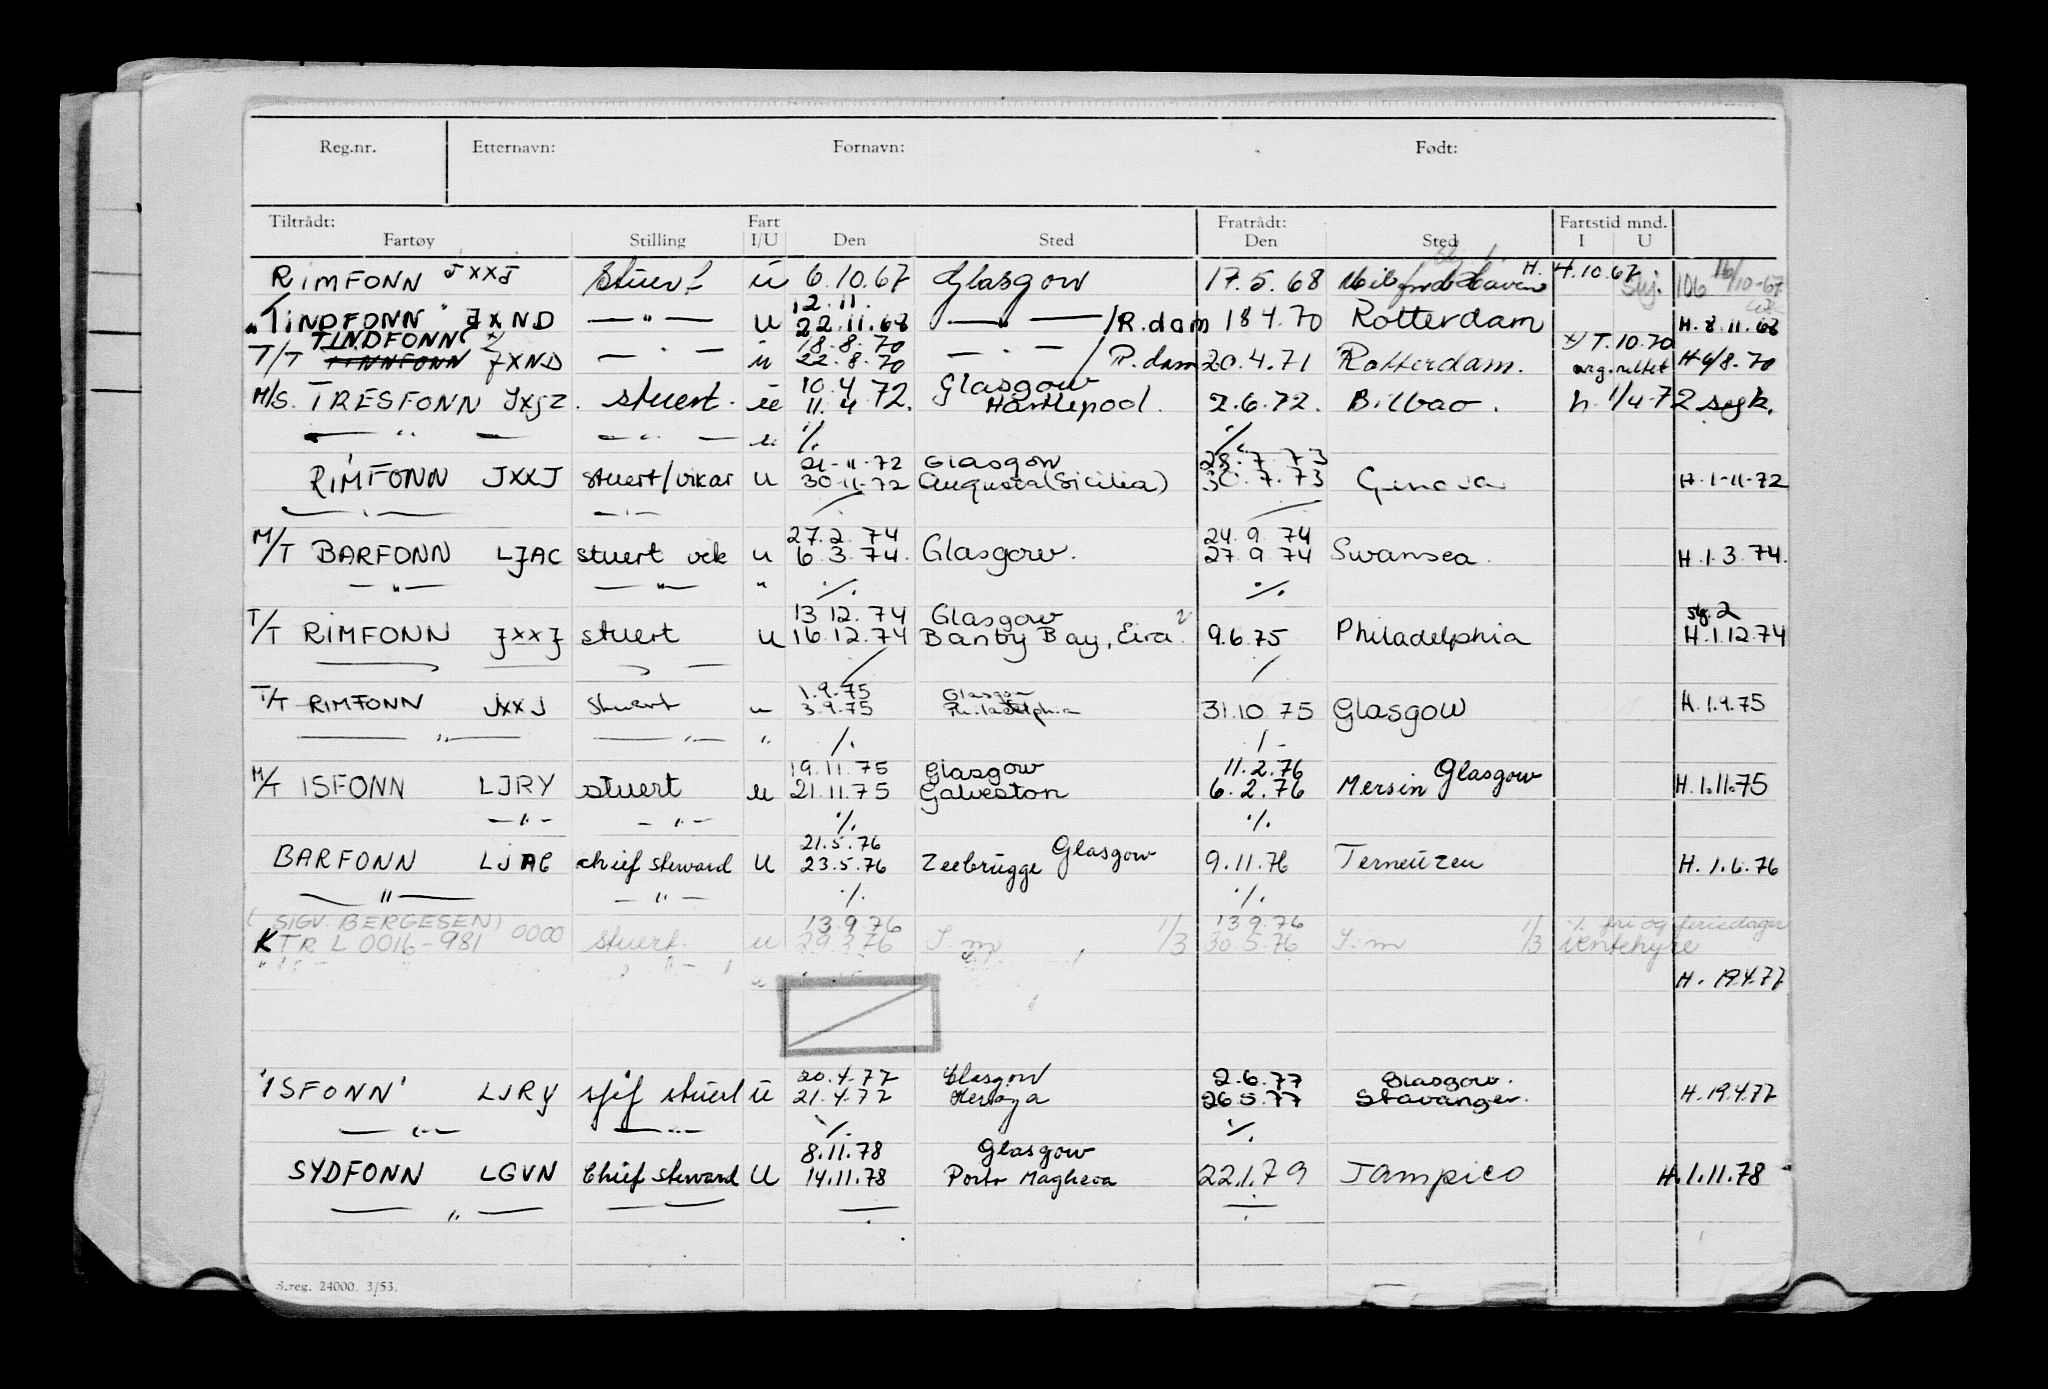 Reg.nr. Etternavn: Fornavn: Født:
Tiltrådt: Fart Fratrådt: Fartstid mnd.
Fartøy Stilling I/U Den Sted Den Sted I U
RIMFONN JXXJ Stuert ü 6.10.67 Glasgow 17.5.68 H. 4.10.67 Sij. 106 16/10-67
12.11.
"TINDFONN" JXND — " — u 22.11.68 — " — /R.dam 18 4.70 Rotterdam H. 8.11.68
TINDFONN x) 18.8.70 x) T.10.70
T/T TINNFONN JXND — " — u 22.8.70 — " — / R.dam 20.4.71 Rotterdam. arg. rettet H 6/8.70
10.4 Glasgow
M/S. TRESFONN JXJZ. stuert. u 11.4 72. Hartlepool. 2.6.72. Bilbao. h. 1/4-72 syk.
— " — — " — u ./. ./.
21-11-72 Glasgow 28.7.73
RIMFONN JXXJ stuert/vikar u 30-11-72 Augusta (Sicilia) 30.7.73 Genova H. 1-11-72
— " — — " —
27.2.74 24.9.74
M/T BARFONN LJAC stuert vik u 6.3.74. Glasgow. 27.9.74 Swansea. H. 1.3.74.
— " — — " — " ./. ./.
13.12.74 Glasgow 2 sy. 2
T/T RIMFONN JXXJ stuert u 16.12.74 Banby Bay, Eira? 9.6.75 Philadelphia H. 1.12.74
1.9.75 Glasgow
T/T RIMFONN JXXJ Stuert u 3.9.75 Philadelphia 31.10.75 Glasgow H. 1.9.75
— " — — " — " ./. ./.
19.11.75 Glasgow 11.2.76 Glasgow
M/T ISFONN LJRY stuert u 21.11.75 Galveston 6.2.76 Mersin H. 1.11.75
— " — — " — ./. ./.
21.5.76 Glasgow
BARFONN LJAC chief steward U 23.5.76 Zeebrügge 9.11.76 Terneüzen H. 1.6.76
— " — — " — ./. ./.
(SIGV. BERGESEN) 0000 13.9.76 1/3 13.9.76 1/3 ./. fri og feriedager
KTR L 0016-981 stuert. u 29.3.76 S.m 30.5.76 S.m ventehyre
H. 19.4.77
20.4.77 Glasgow 2.6.77 Glasgow.
'ISFONN' LJRY sjef stuert ü 21.4.77 Herøya 26.5.77 Stavanger. H. 19.4.77
— " — — " — ./. ./.
8.11.78 Glasgow
SYDFONN LGVN Chief Steward U 14.11.78 Porto Maghera 22.1.79 Tampico H. 1.11.78
— " —
S.reg. 24000. 3/53.